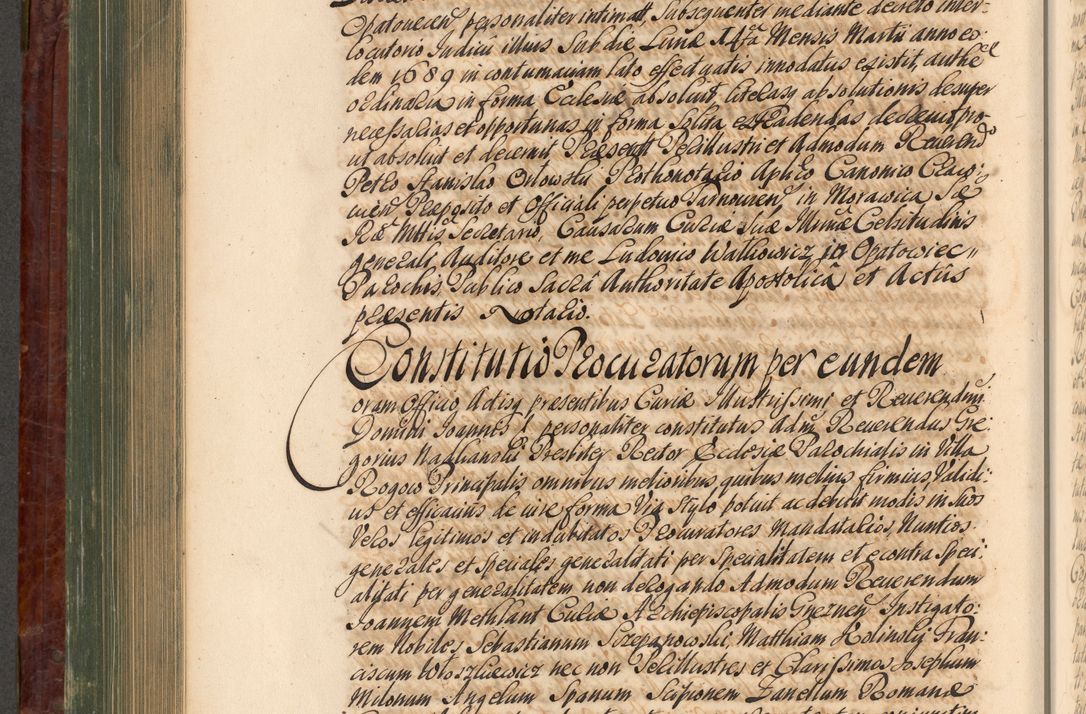 Opatoviecen personaliter intimatt, Subsequenter mediante decreto inter-
locutorio Iudicii illius Sub die Lunæ 14ta Mensis Martii anno eo-
dem 1689 in contumaciam lato effectt gatis innodatus existit, authe
ordinaria in forma Ecclesiæ absoluit, literasq absolutionis desuper
necessarias et opportunas in forma Solita extradendas decreuit, pro-
ut absoluit et decernit Præsentt Perillustri et Admodum Reuerendo
Petro Stanislao Orlowski Prothonotario Aplico Canonico Craco:
uien Præposito et Officiali perpetuo Tarnouien, in Morawica Sæ
Ræ Mttis Secretario, Causarum Curiæ Suæ Illmæ Celsitudinis
generali Auditore et me Ludouico Walkowicz in Opatowiec
Parochis Publico Sacrâ Authoritate Apostolicâ et Actûs
præsentis Notario.
Constitutio Procuratorum per eundem
oram Officio Actisq præsentibus Curiæ Illustrissimi et Reuerendmi
Domini Ioannis personaliter constitutus Admr Reuerendus Gre
gorius Naglianski Presbiter Rector Ecclesiæ Parochialis in Villa
Rogow Principalis omnibus melioribus quibus melius firmius Validi:
us et efficacius de iure forma Via Stylo potuit ac debuit modis in suos
Veros legitimos et indubitatos Procuratores Mandatarios, Nuntios
generales et Speciales generalitati per Specialitatem et e contra Speci:
alitati per generalitatem non derogando Admodum Reuerendum
Ioannem Methlant Curiæ Archiepiscopalis Gneznen Instigato:
rem Nobiles Sebastianum Szczepanowski, Matthiam Kolinsky Fran:
ciscum Wotoszkiewicz nec non Perillustres et Clarissimos Iosephum
Milonum Angelum Spanum Scipionem Zanellum Romanæ